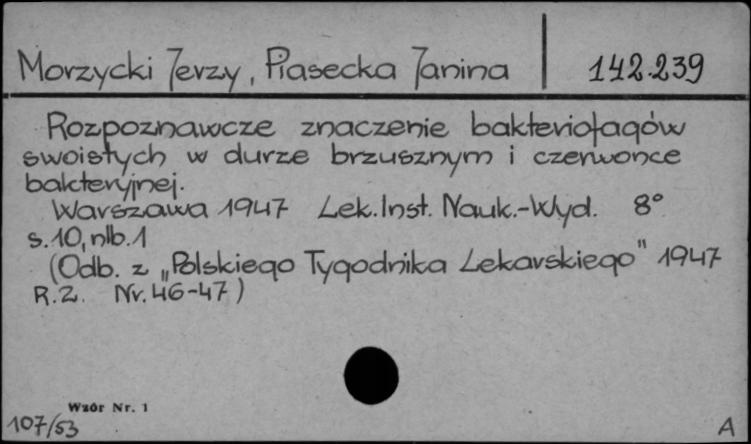 Morzycki Jerzy, Piasecka Janina 142.239
Rozpoznawcze znaczenie bakteriofagów
swoistych w durze brzusznym i czerwonce
bakteryjnej.
Warszawa 1947 Lek. Inst. Nauk.-Wyd. 8°
s. 10, nlb. 1
(Odb. z „Polskiego Tygodnika Lekarskiego" 1947
R. 2. Nr. 46-47)
Wzór Nr. 1
107/53 A